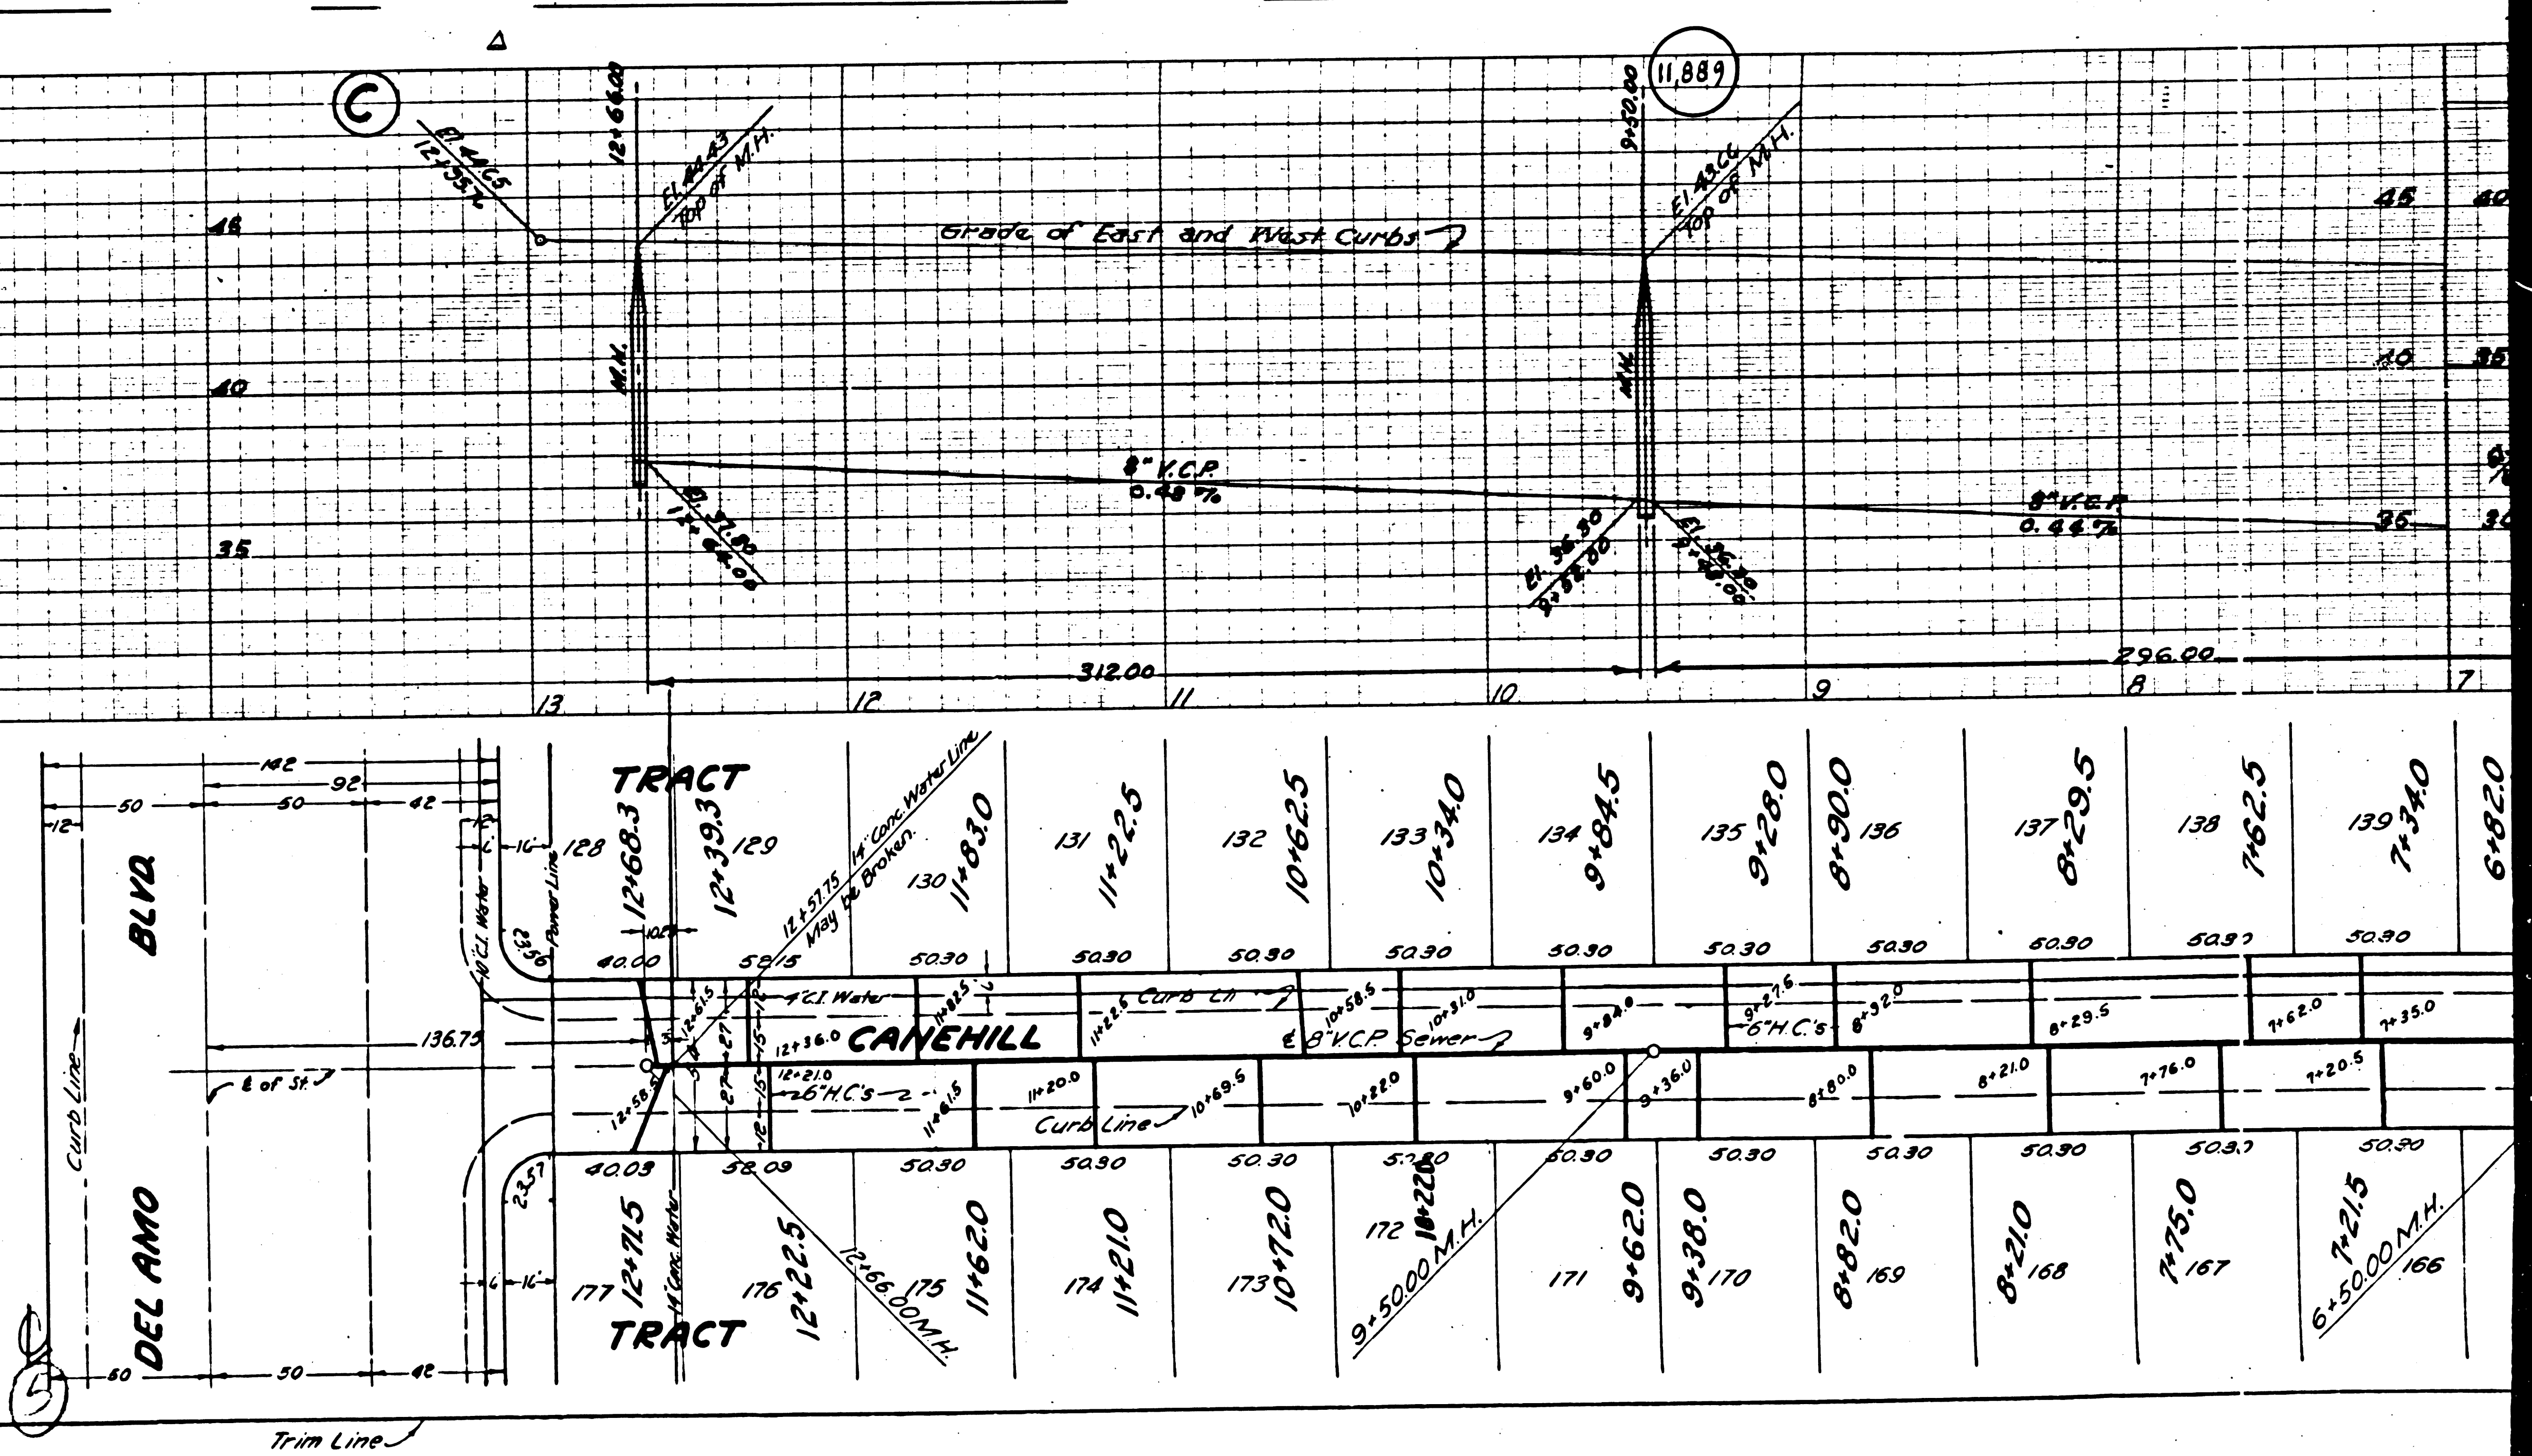 C
11,889
12+66.00
9+50.00
El. 44.65
12+95.72
El. 44.43
Top of M.H.
El. 43.66
Top of M.H.
45
45
40
Grade of East and West Curbs
M.H.
M.H.
40
40
35
8" V.C.P.
0.48 %
8" V.C.P.
0.44 %
35
35
El. 37.80
12+64.00
El. 36.30
9+52.00
312.00
296.00
13
12
11
10
9
8
7
142
92
50
50
42
12
12
6
16
TRACT
BLVD.
DEL AMO
10" C.I. Water
Power Line
23.56
128
12+68.3
12+39.3
129
12+57.75 14" Conc. Water Line
May be Broken.
130
11+83.0
131
11+22.5
132
10+62.5
133
10+34.0
134
9+84.5
135
9+28.0
8+90.0
136
137
8+29.5
138
7+62.5
139
7+34.0
6+82.0
40.00
58.15
50.30
50.30
50.30
50.30
50.30
50.30
50.30
50.30
50.30
50.30
12+61.5
27
12
15
4" C.I. Water
11+82.5
6
11+22.5
Curb Ln
10+58.5
10+31.0
9+84.0
9+27.5
6" H.C.'s
8+92.0
8+29.5
7+62.0
7+35.0
136.75
12+36.0
CANEHILL
℄ 8" V.C.P. Sewer
℄ of St.
Curb Line
12+58.5
27
15
12
12+21.0
6" H.C.'s
11+61.5
11+20.0
Curb Line
10+69.5
10+22.0
9+60.0
9+36.0
8+80.0
8+21.0
7+76.0
7+20.5
23.57
40.03
58.09
50.30
50.30
50.30
50.30
50.30
50.30
50.30
50.30
50.30
50.30
6
16
177
12+71.5
14" Conc. Water
176
12+22.5
12+66.00 M.H.
175
11+62.0
174
11+21.0
173
10+72.0
172
10+22.0
9+50.00 M.H.
171
9+62.0
9+38.0
170
8+82.0
169
8+21.0
168
7+75.0
167
7+21.5
6+50.00 M.H.
166
TRACT
50
50
42
5
Trim Line